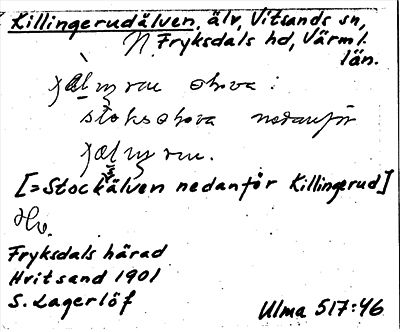 Killingerudälven, älv, Vitsands sn,
N. Fryksdals hd, Värml.
län.
nedanför
[=Stockälven nedanför Killingerud]
Hv.
Fryksdals härad
Hvitsand 1901
S. Lagerlöf
Ulma 517:46